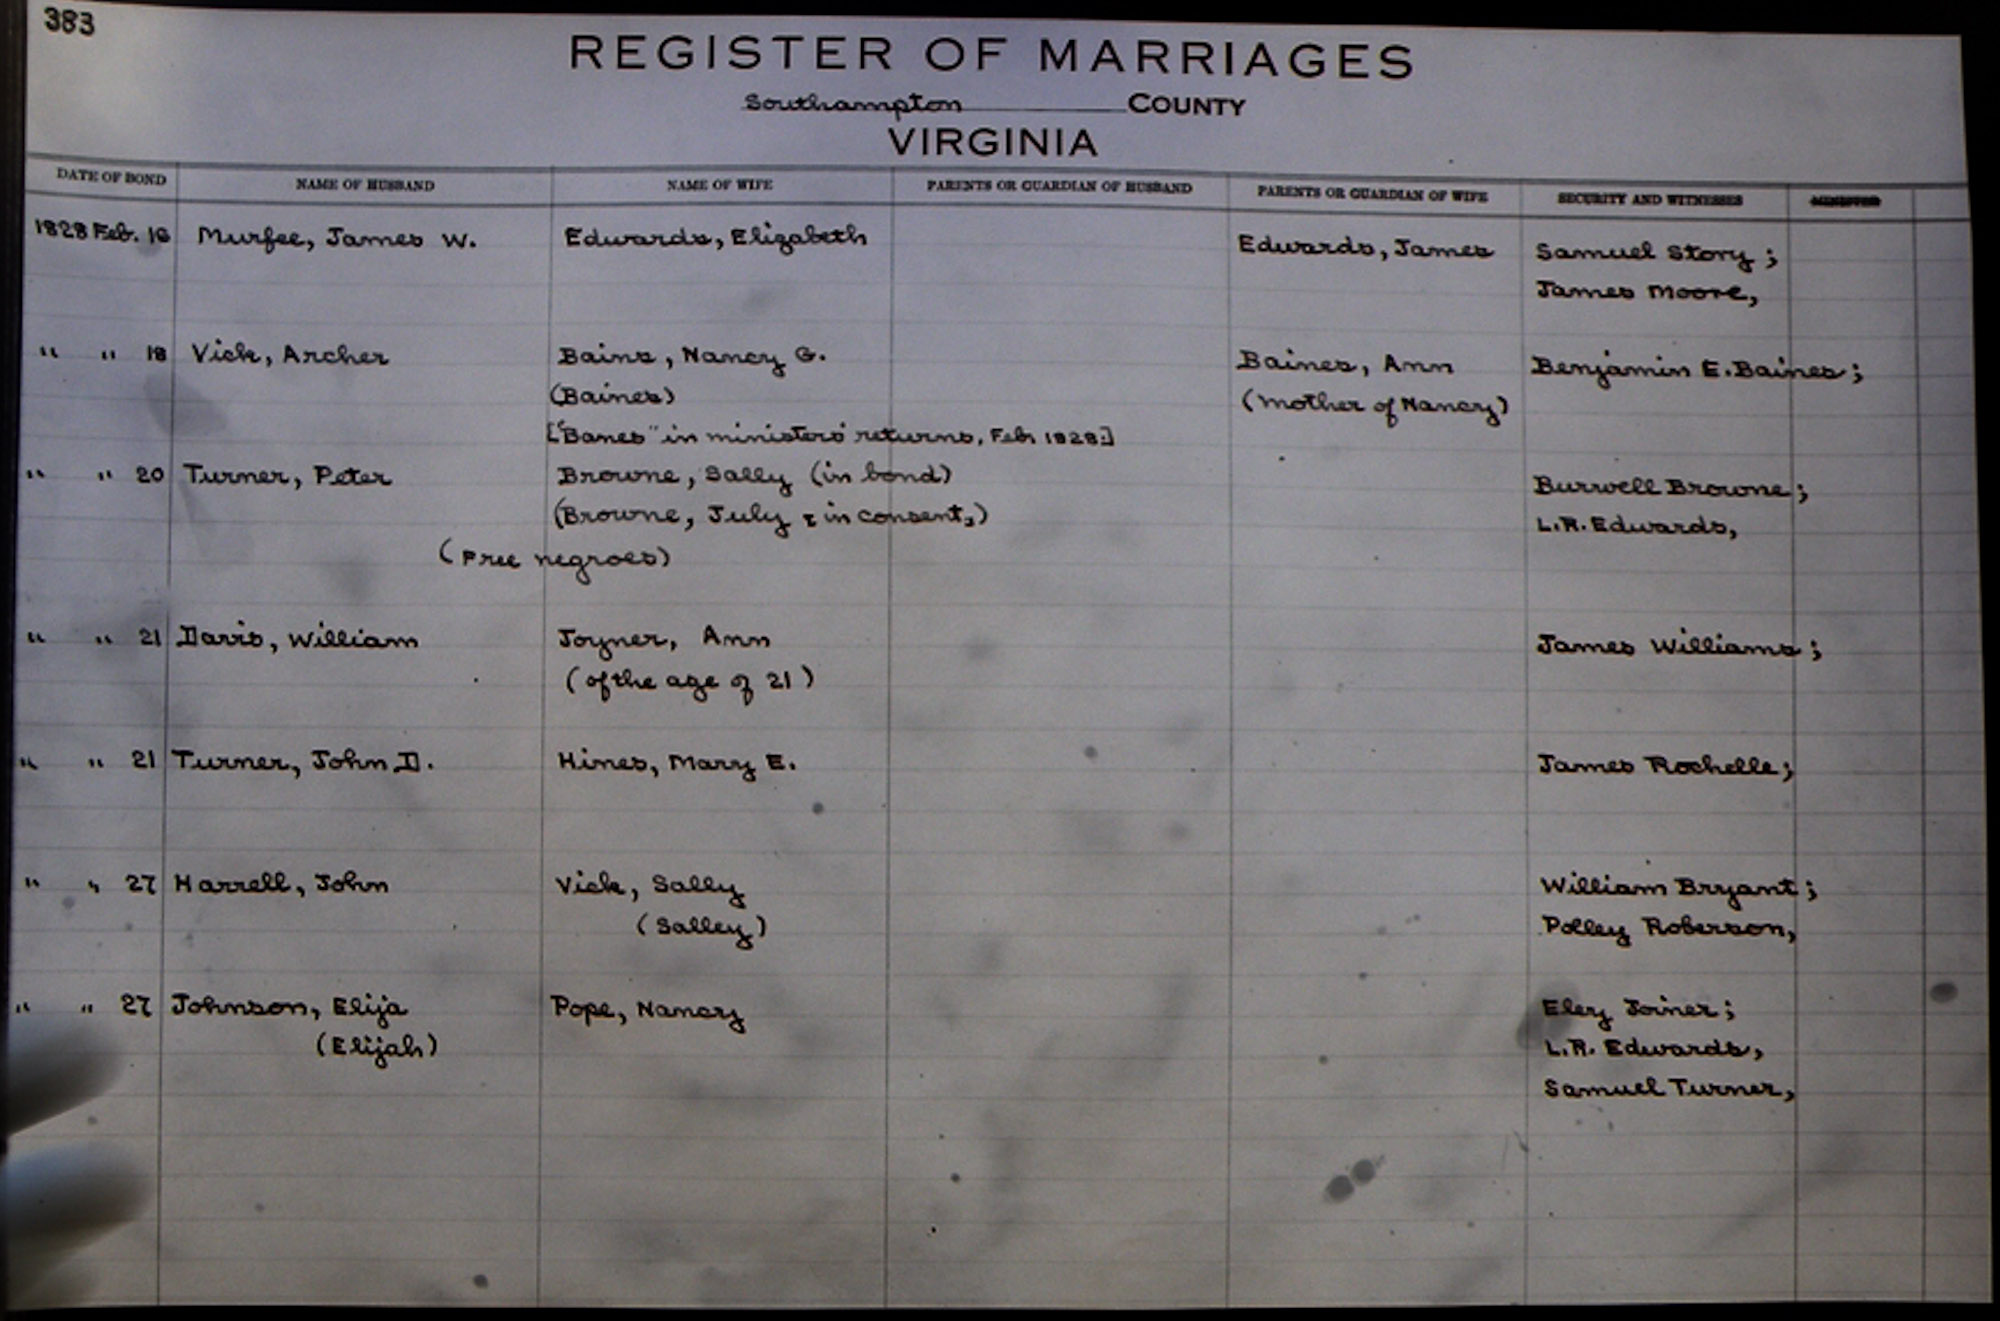 383
REGISTER OF MARRIAGES
Southampton COUNTY
VIRGINIA
DATE OF BOND NAME OF HUSBAND NAME OF WIFE PARENTS OR GUARDIAN OF HUSBAND PARENTS OR GUARDIAN OF WIFE SECURITY AND WITNESSES
1828 Feb. 16 Murfee, James W. Edwards, Elizabeth Edwards, James Samuel Story;
James Moore,
" " 18 Vick, Archer Bains, Nancy G. Baines, Ann Benjamin E. Baines;
(Baines) (mother of Nancy)
["Banes" in ministers' returns, Feb. 1828.]
" " 20 Turner, Peter Browne, Sally (in bond) Burwell Browne;
(Browne, July, in consent,) L.R. Edwards,
(Free negroes)
" " 21 Davis, William Joyner, Ann James Williams;
(of the age of 21)
" " 21 Turner, John D. Hines, Mary E. James Rochelle;
" " 27 Harrell, John Vick, Sally William Bryant;
(Salley) Polley Roberson,
" " 27 Johnson, Elija Pope, Nancy Eley Joiner;
(Elijah) L.R. Edwards,
Samuel Turner,